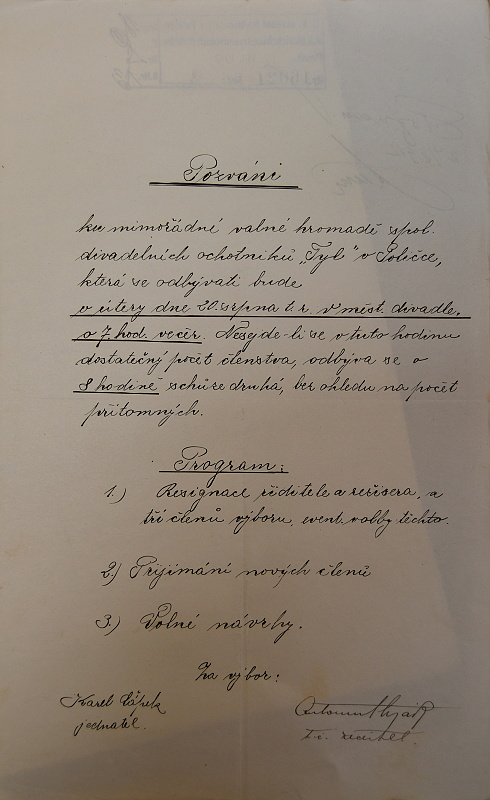 Pozvání
ku mimořádné valné hromadě spol.
divadelních ochotníků „Tyl" v Poličce,
která se odbývati bude
v úterý dne 20. srpna t. r. v měst. divadle,
o 7. hod. večer. Nesejde-li se v tuto hodinu
dostatečný počet členstva, odbývá se o
8 hodině schůze druhá, bez ohledu na počet
přítomných.
Program:
1.) Resignace ředitele a režisera, a
tří členů výboru, event. volby těchto.
2.) Přijímání nových členů
3.) Volné návrhy.
Za výbor:
Karel Čápek
jednatel.
Antonín
t. č. ředitel